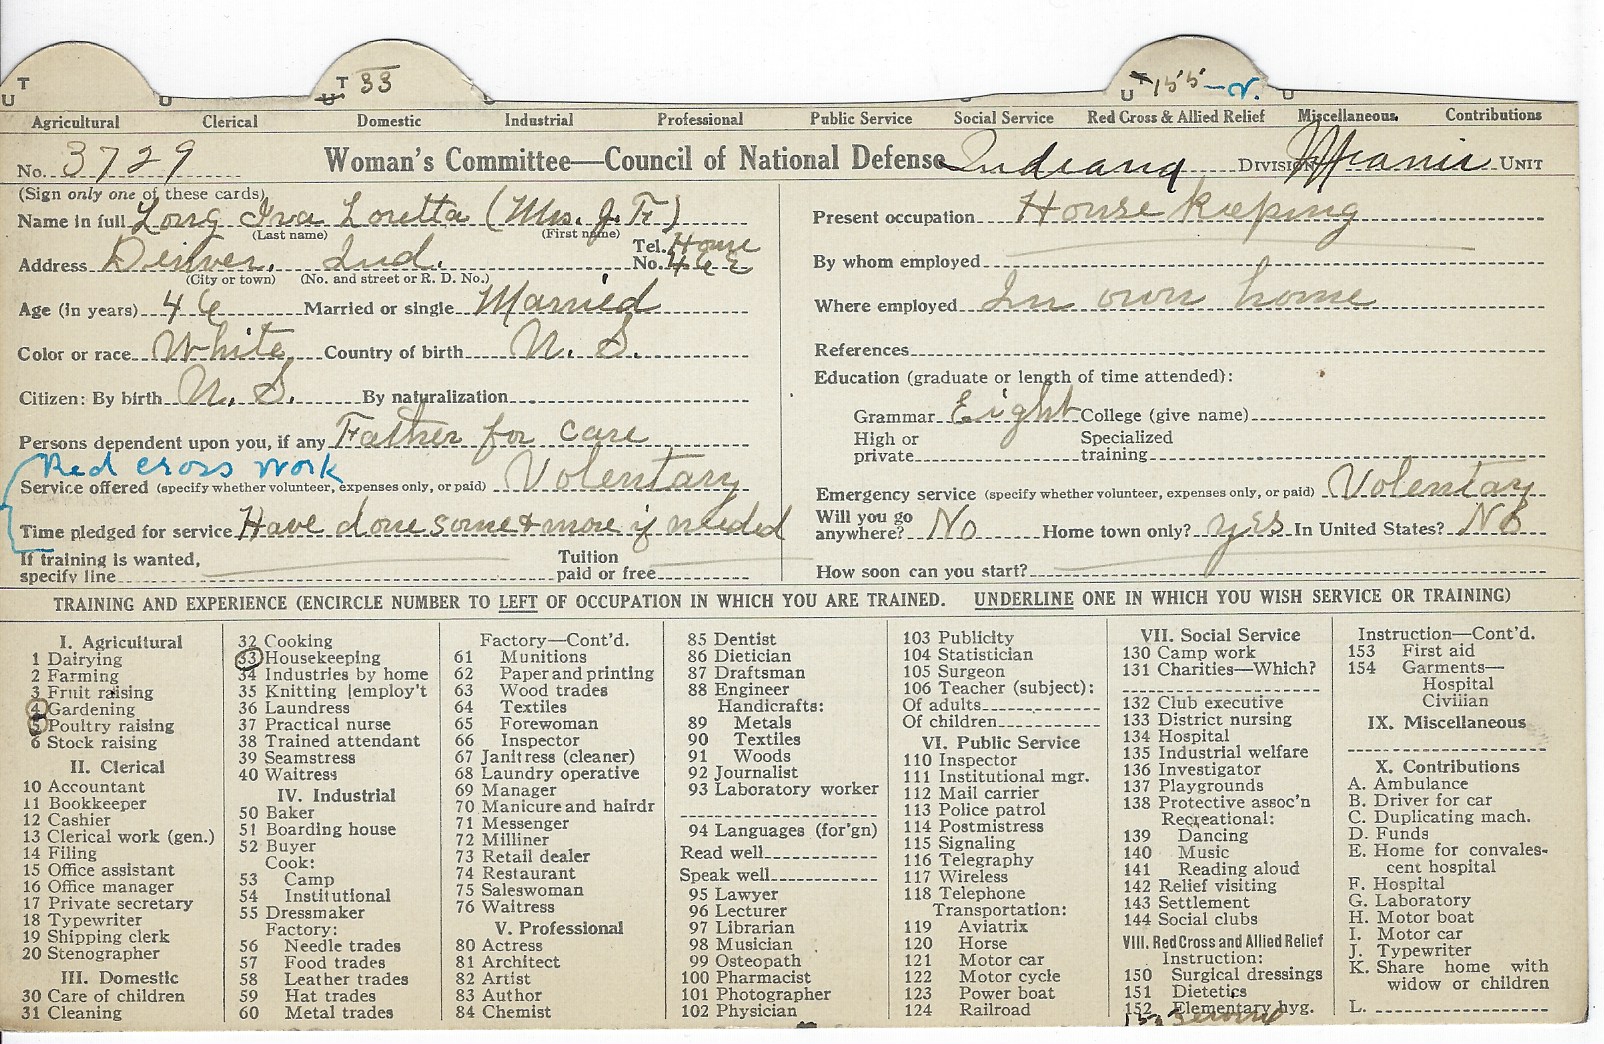 T T 33 T 155-v.
U U U U U
Agricultural Clerical Domestic Industrial Professional Public Service Social Service Red Cross & Allied Relief Miscellaneous. Contributions
No. 3729 Woman's Committee—Council of National Defense Indiana Division Miami Unit
(Sign only one of these cards)
Name in full Long Iva Loretta (Mrs. J. F.)
(Last name) (First name)
Address Denver, Ind. Tel. No. Home 46
(City or town) (No. and street or R. D. No.)
Age (in years) 46 Married or single Married
Color or race White Country of birth U. S.
Citizen: By birth U. S. By naturalization
Persons dependent upon you, if any Father for care
Red cross work
Service offered (specify whether volunteer, expenses only, or paid) Volentary
Time pledged for service Have done some & more if needed
If training is wanted, specify line Tuition paid or free
Present occupation House keeping
By whom employed
Where employed In own home
References
Education (graduate or length of time attended):
Grammar Eight College (give name)
High or private Specialized training
Emergency service (specify whether volunteer, expenses only, or paid) Volentary
Will you go anywhere? No Home town only? yes In United States? No
How soon can you start?
TRAINING AND EXPERIENCE (ENCIRCLE NUMBER TO LEFT OF OCCUPATION IN WHICH YOU ARE TRAINED. UNDERLINE ONE IN WHICH YOU WISH SERVICE OR TRAINING)
I. Agricultural
1 Dairying
2 Farming
3 Fruit raising
4 Gardening
5 Poultry raising
6 Stock raising
II. Clerical
10 Accountant
11 Bookkeeper
12 Cashier
13 Clerical work (gen.)
14 Filing
15 Office assistant
16 Office manager
17 Private secretary
18 Typewriter
19 Shipping clerk
20 Stenographer
III. Domestic
30 Care of children
31 Cleaning
32 Cooking
33 Housekeeping
34 Industries by home
35 Knitting [employ't
36 Laundress
37 Practical nurse
38 Trained attendant
39 Seamstress
40 Waitress
IV. Industrial
50 Baker
51 Boarding house
52 Buyer
Cook:
53 Camp
54 Institutional
55 Dressmaker
Factory:
56 Needle trades
57 Food trades
58 Leather trades
59 Hat trades
60 Metal trades
Factory—Cont'd.
61 Munitions
62 Paper and printing
63 Wood trades
64 Textiles
65 Forewoman
66 Inspector
67 Janitress (cleaner)
68 Laundry operative
69 Manager
70 Manicure and hairdr
71 Messenger
72 Milliner
73 Retail dealer
74 Restaurant
75 Saleswoman
76 Waitress
V. Professional
80 Actress
81 Architect
82 Artist
83 Author
84 Chemist
85 Dentist
86 Dietician
87 Draftsman
88 Engineer
Handicrafts:
89 Metals
90 Textiles
91 Woods
92 Journalist
93 Laboratory worker
94 Languages (for'gn)
Read well
Speak well
95 Lawyer
96 Lecturer
97 Librarian
98 Musician
99 Osteopath
100 Pharmacist
101 Photographer
102 Physician
103 Publicity
104 Statistician
105 Surgeon
106 Teacher (subject):
Of adults
Of children
VI. Public Service
110 Inspector
111 Institutional mgr.
112 Mail carrier
113 Police patrol
114 Postmistress
115 Signaling
116 Telegraphy
117 Wireless
118 Telephone
Transportation:
119 Aviatrix
120 Horse
121 Motor car
122 Motor cycle
123 Power boat
124 Railroad
VII. Social Service
130 Camp work
131 Charities—Which?
132 Club executive
133 District nursing
134 Hospital
135 Industrial welfare
136 Investigator
137 Playgrounds
138 Protective assoc'n
Recreational:
139 Dancing
140 Music
141 Reading aloud
142 Relief visiting
143 Settlement
144 Social clubs
VIII. Red Cross and Allied Relief
Instruction:
150 Surgical dressings
151 Dietetics
152 Elementary hyg.
Instruction—Cont'd.
153 First aid
154 Garments—
Hospital
Civilian
IX. Miscellaneous
X. Contributions
A. Ambulance
B. Driver for car
C. Duplicating mach.
D. Funds
E. Home for convales-
cent hospital
F. Hospital
G. Laboratory
H. Motor boat
I. Motor car
J. Typewriter
K. Share home with
widow or children
L.